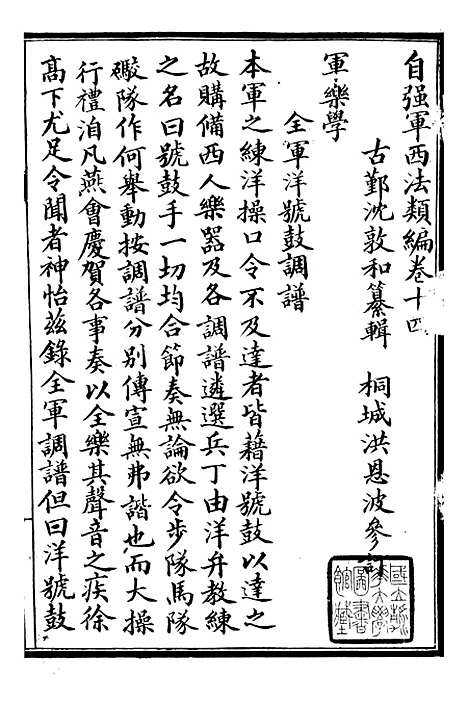 自强軍西法類編卷十四
古鄞沈敦和纂輯　桐城洪恩波參訂
軍樂學
全軍洋號鼓調譜
本軍之練洋操口令不及達者皆藉洋號鼓以達之
故購備西人樂器及各調譜遴選兵丁由洋弁教練
之名曰號鼓手一切均合節奏無論欲令步隊馬隊
礮隊作何舉動按調譜分別傳宣無弗諧也而大操
行禮洎凡燕會慶賀各事奏以全樂其聲音之疾徐
高下尤足令聞者神怡茲錄全軍調譜但曰洋號鼓